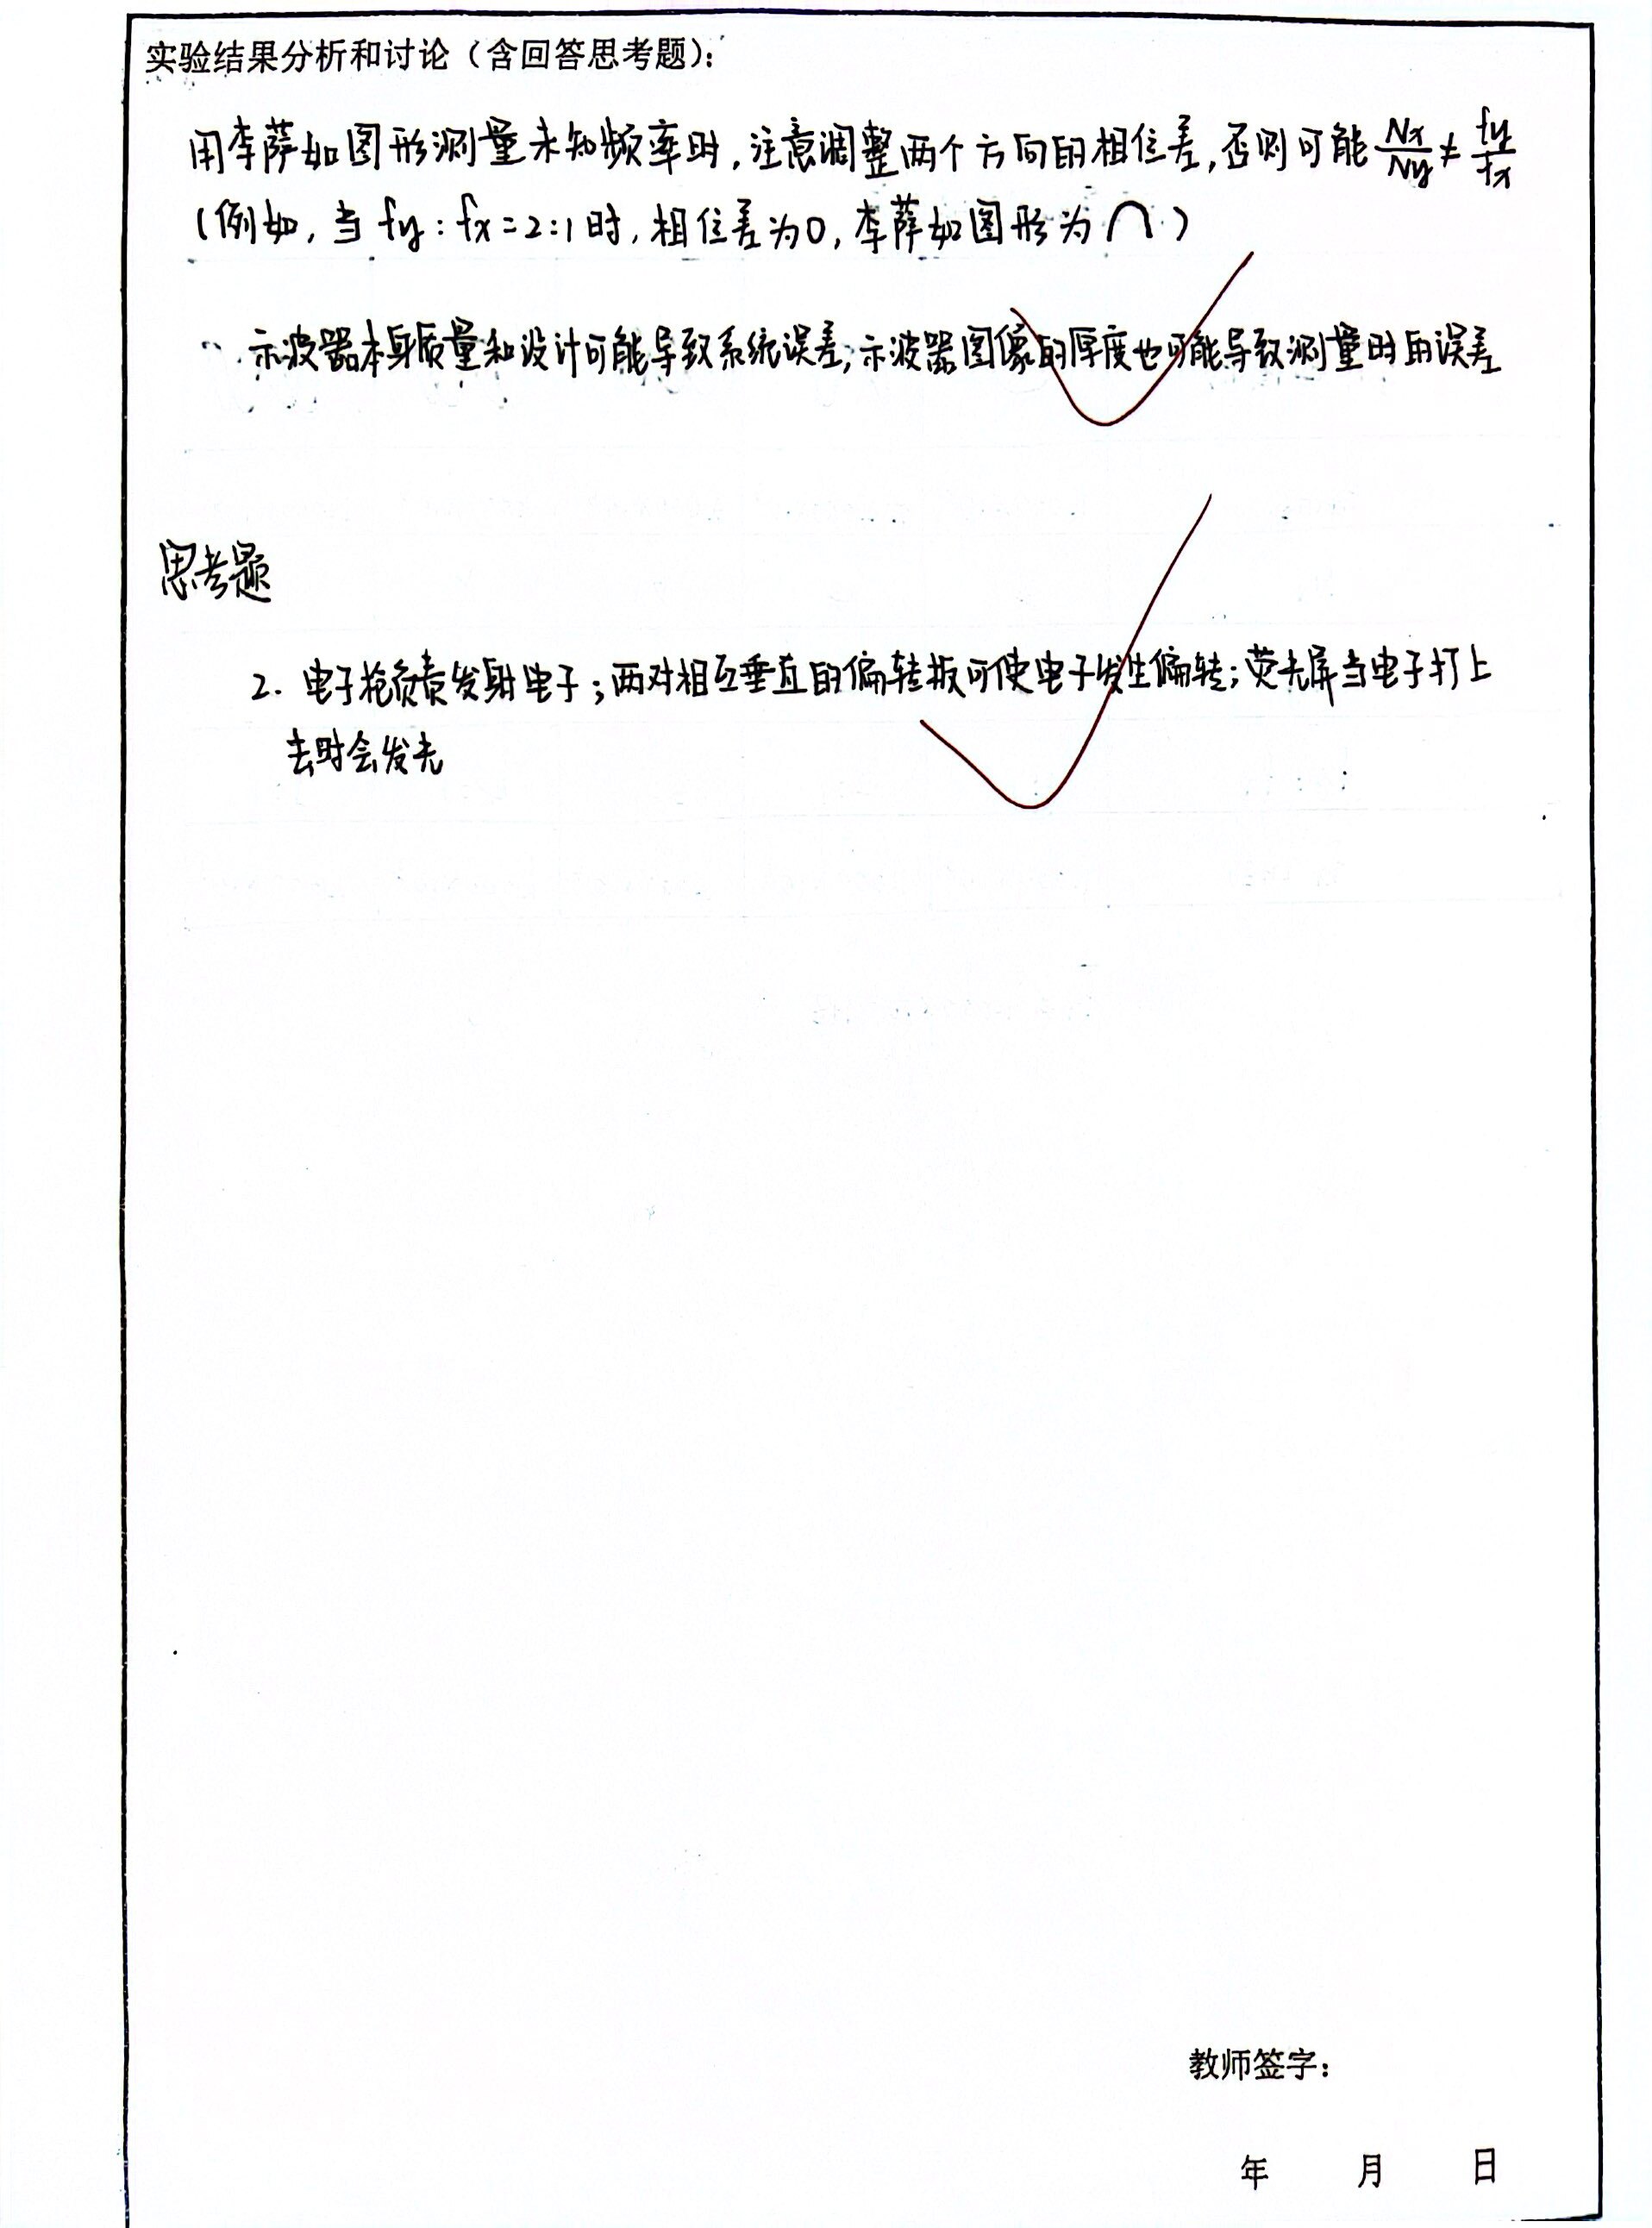 实验结果分析和讨论（含回答思考题）：
用李萨如图形测量未知频率时，注意调整两个方向的相位差，否则可能 Nx/Ny ≠ fy/fx
（例如，当 fy : fx = 2:1 时，相位差为0，李萨如图形为 ∩ ）
示波器本身质量和设计可能导致系统误差；示波器图像的厚度也可能导致测量时的误差
思考题
2. 电子枪负责发射电子；两对相互垂直的偏转板可使电子发生偏转；荧光屏当电子打上
去时会发光
教师签字：
年 月 日